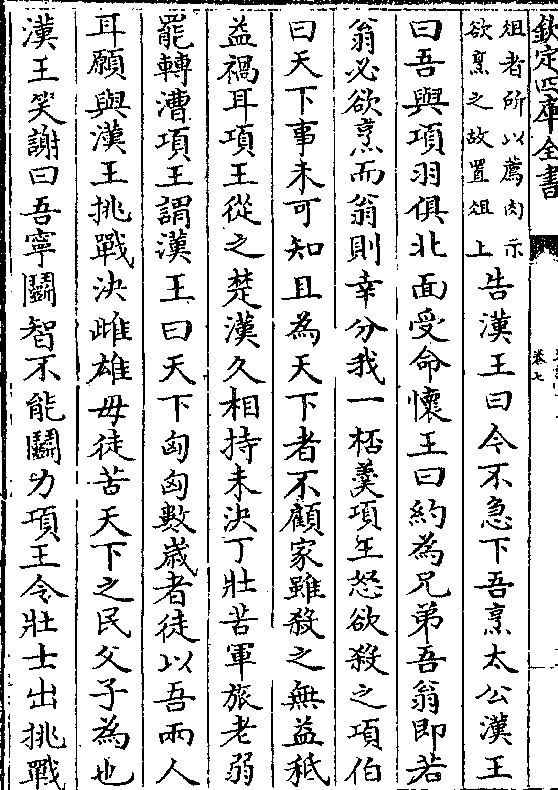 欽定四庫全書
卷七
俎者所以薦肉示
欲烹之故置俎上
告漢王曰今不急下吾烹太公漢王
曰吾與項羽俱北面受命懷王曰約為兄弟吾翁即若
翁必欲烹而翁則幸分我一桮羹項王怒欲殺之項伯
曰天下事未可知且為天下者不顧家雖殺之無益秪
益禍耳項王從之楚漢久相持未決丁壯苦軍旅老弱
罷轉漕項王謂漢王曰天下匈匈數歲者徒以吾兩人
耳願與漢王挑戰決雌雄毋徒苦天下之民父子為也
漢王笑謝曰吾寧鬬智不能鬬力項王令壯士出挑戰